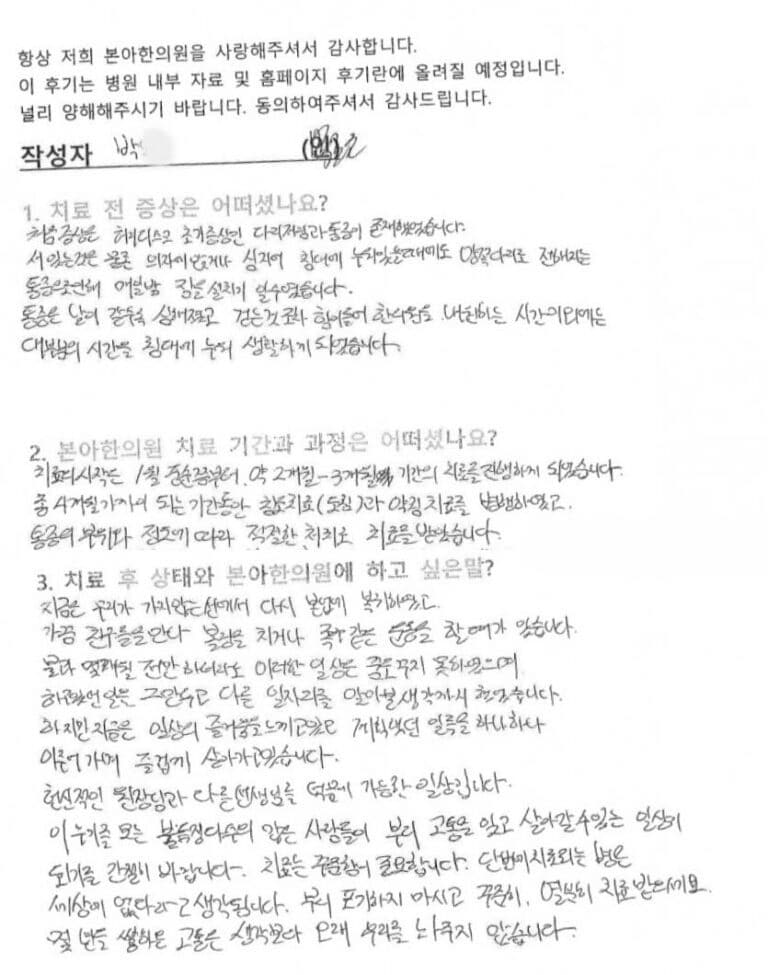 항상 저희 본아한의원을 사랑해주셔서 감사합니다.
이 후기는 병원 내부 자료 및 홈페이지 후기란에 올려질 예정입니다.
널리 양해해주시기 바랍니다. 동의하여주셔서 감사드립니다.
작성자 박 (인)
1. 치료 전 증상은 어떠셨나요?
처음증상은 허리디스크 초기증상인 다리저림과 통증이 존재했었습니다.
서있는것은 물론 의자에 앉거나 심지어 침대에 누워있을때에도 양쪽다리로 전해지는
통증으로인해 매일밤 잠을 설치기 일수였습니다.
통증은 날이 갈수록 심해졌고 걷는것 조차 힘이들어 한의원을 내원하는 시간이외에는
대부분의 시간을 침대에 누워 생활하게 되었습니다.
2. 본아한의원 치료 기간과 과정은 어떠셨나요?
치료의시작은 1월 중순쯤부터 약 2개월-3개월 기간의 치료를 진행하게 되었습니다.
총 4개월가까이 되는 기간동안 침도치료(도침)과 약침치료를 병행하였고
통증의 부위와 정도에 따라 적절한 처치로 치료를 받았습니다.
3. 치료 후 상태와 본아한의원에 하고 싶은말?
지금은 무리가 가지않는선에서 다시 본업에 복귀하였고
가끔 친구들을만나 볼링을 치거나 족구같은 운동을 할때가 있습니다.
불과 몇개월 전만 하더라도 이러한 일상은 꿈도꾸지 못하였으며
하고있던일을 그만두고 다른 일자리를 알아볼생각까지 하였습니다.
하지만 지금은 일상의 즐거움을느끼고있고 계획했던 일들을 하나하나
이루어가며 즐겁게 살아가고있습니다.
헌신적인 원장님과 다른선생님들 덕분에 가능한 일상입니다.
이 누기를 보는 불특정다수의 많은 사람들이 부디 고통을 잊고 살아갈수있는 일상이
되기를 간절히 바랍니다. 치료는 꾸준함이 필요합니다. 단번에치료되는 병은
세상에 없다라고 생각됩니다. 부디 포기하지 마시고 꾸준히, 열심히 치료 받으세요.
몇 년을 함께한 고통은 생각보다 오래 우리를 놔주지 않습니다.